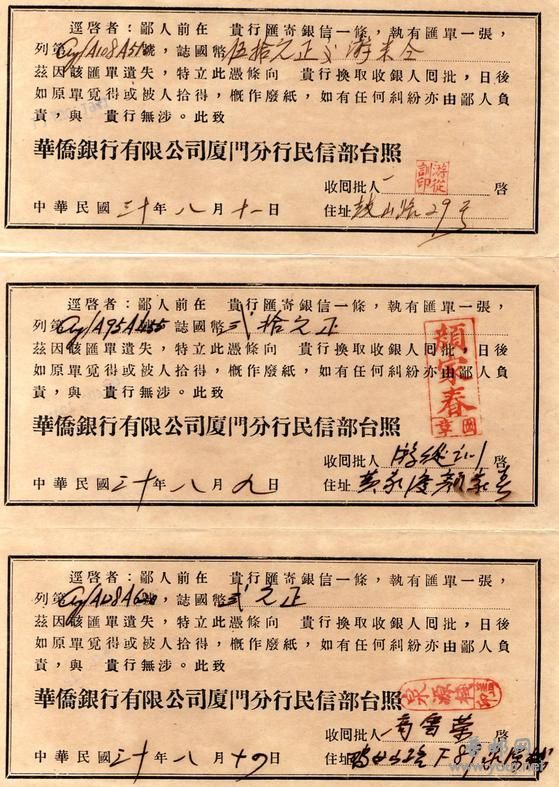 逕啓者：鄙人前在 貴行匯寄銀信一條，執有匯單一張，
列第 Cy/A108A 號，誌國幣伍拾元正 游 
茲因該匯單遺失，特立此憑條向 貴行換取收銀人囘批，日後
如原單覓得或被人拾得，概作廢紙，如有任何糾紛亦由鄙人負
責，與 貴行無涉。此致
華僑銀行有限公司厦門分行民信部台照
游從訓印
收囘批人 啓
中華民國三十年八月十一日 住址鼓山路29号
逕啓者：鄙人前在 貴行匯寄銀信一條，執有匯單一張，
列第 Cy/A95A455 誌國幣貳拾元正
茲因該匯單遺失，特立此憑條向 貴行換取收銀人囘批，日後
如原單覓得或被人拾得，概作廢紙，如有任何糾紛亦由鄙人負
責，與 貴行無涉。此致
顏家春
圖章
華僑銀行有限公司厦門分行民信部台照
收囘批人 游從訓 啓
中華民國三十年八月九日 住址 顏家春
逕啓者：鄙人前在 貴行匯寄銀信一條，執有匯單一張，
列第 誌國幣貳元正
茲因該匯單遺失，特立此憑條向 貴行換取收銀人囘批，日後
如原單覓得或被人拾得，概作廢紙，如有任何糾紛亦由鄙人負
責，與 貴行無涉。此致
華僑銀行有限公司厦門分行民信部台照
收囘批人 啓
中華民國三十年八月十四日 住址